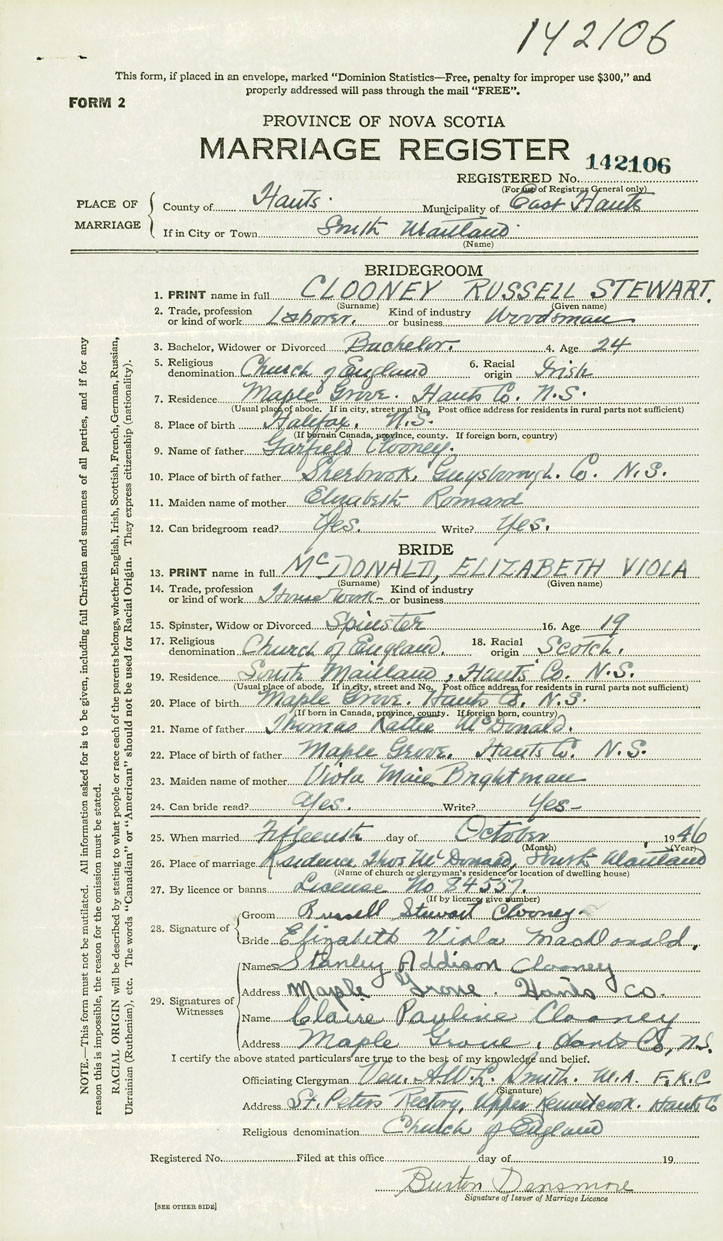 142106
This form, if placed in an envelope, marked "Dominion Statistics—Free, penalty for improper use $300," and
properly addressed will pass through the mail "FREE".
FORM 2
PROVINCE OF NOVA SCOTIA
MARRIAGE REGISTER
142106
REGISTERED No.
(For use of Registrar General only)
PLACE OF MARRIAGE
County of Hants. Municipality of East Hants
If in City or Town South Maitland
(Name)
BRIDEGROOM
1. PRINT name in full CLOONEY RUSSELL STEWART.
(Surname) (Given name)
2. Trade, profession or kind of work Laborer. Kind of industry or business Woodsman
3. Bachelor, Widower or Divorced Bachelor. 4. Age 24
5. Religious denomination Church of England 6. Racial origin Irish
7. Residence Maple Grove. Hants Co. N.S.
(Usual place of abode. If in city, street and No. Post office address for residents in rural parts not sufficient)
8. Place of birth Halifax. N.S.
(If born in Canada, province, county. If foreign born, country)
9. Name of father Garfield Clooney.
10. Place of birth of father Sherbrook, Guysborough. Co. N.S.
11. Maiden name of mother Elizabeth Romard
12. Can bridegroom read? Yes. Write? Yes.
BRIDE
13. PRINT name in full McDONALD, ELIZABETH VIOLA
(Surname) (Given name)
14. Trade, profession or kind of work House work- Kind of industry or business
15. Spinster, Widow or Divorced Spinster 16. Age 19
17. Religious denomination Church of England. 18. Racial origin Scotch.
19. Residence South Maitland, Hants Co. N.S.
(Usual place of abode. If in city, street and No. Post office address for residents in rural parts not sufficient)
20. Place of birth Maple Grove. Hants Co. N.S.
(If born in Canada, province, county. If foreign born, country)
21. Name of father Thomas McDonald.
22. Place of birth of father Maple Grove. Hants Co. N.S.
23. Maiden name of mother Viola Maie Brightman
24. Can bride read? Yes. Write? Yes-
25. When married Fifteenth day of October, 1946
(Month) (Year)
26. Place of marriage Residence Thos McDonald, South Maitland
(Name of church or clergyman's residence or location of dwelling house)
27. By licence or banns License No 84557.
(If by licence, give number)
28. Signature of
Groom Russell Stewart Clooney
Bride Elizabeth Viola MacDonald.
29. Signatures of Witnesses
Name Stanley Addison Clooney
Address Maple Grove. Hants Co.
Name Claire Pauline Clooney
Address Maple Grove, Hants Co, N.S.
I certify the above stated particulars are true to the best of my knowledge and belief.
Officiating Clergyman Ven. A.W.L. Smith. M.A. F.K.C
(Signature)
Address St. Peters Rectory, Upper Kennetcook. Hants Co
Religious denomination Church of England
Registered No. Filed at this office day of 19
Burton Densmore
Signature of Issuer of Marriage Licence
[SEE OTHER SIDE]
NOTE.—This form must not be mutilated. All information asked for is to be given, including full Christian and surnames of all parties, and if for any
reason this is impossible, the reason for the omission must be stated.
RACIAL ORIGIN will be described by stating to what people or race each of the parents belongs, whether English, Irish, Scottish, French, German, Russian,
Ukrainian (Ruthenian), etc. The words "Canadian" or "American" should not be used for Racial Origin. They express citizenship (nationality).